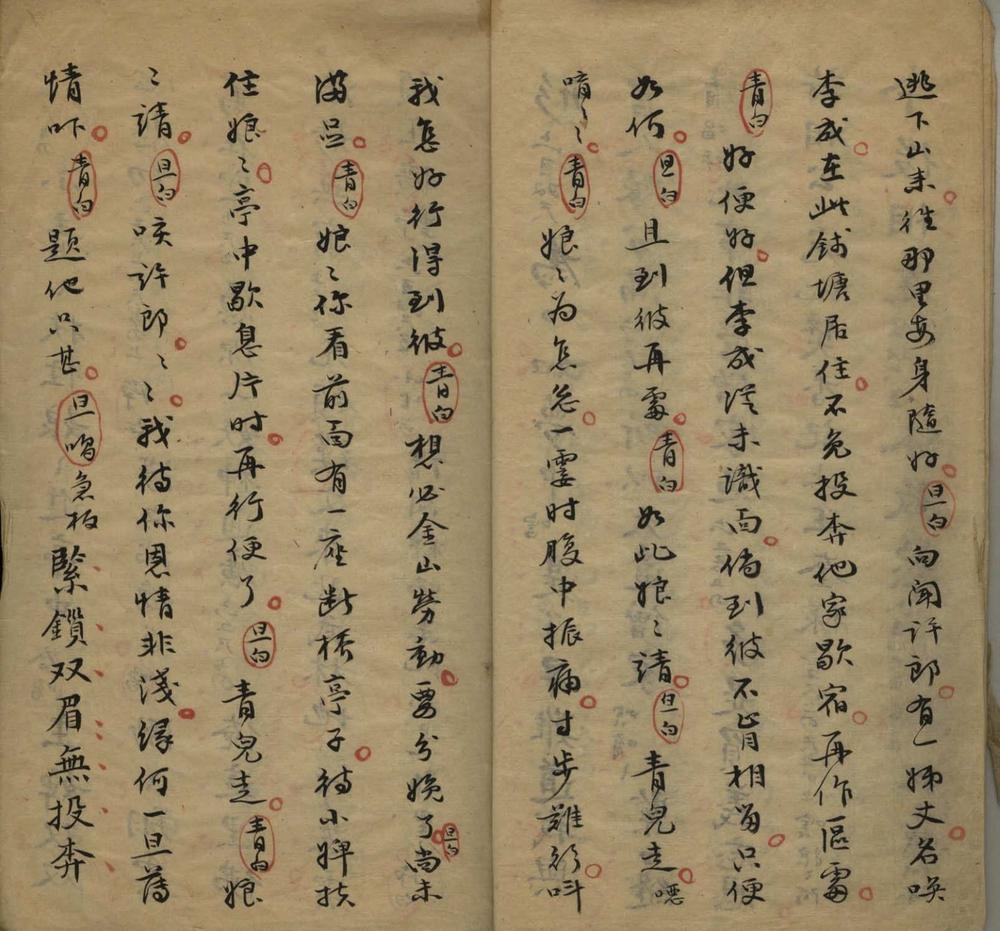 逃下山来往那里安身随好旦白向闻许郎有一姊丈名唤
李成在此钱塘居住不免投奔他家歇宿再作區處
青白好便好但李成從未識面倘到彼不肯相留只便
如何旦白且到彼再處青白如此娘〻請旦白青兒走噁
唷〻青白娘〻为怎忽一霎时腹中振痛寸步難行吓
我怎好行得到彼青白想必金山劳動要分娩了旦白尚未
满足青白娘〻你看前面有一座断桥亭子待小婢扶
住娘〻亭中歇息片时再行便了旦白青兒走青白娘
〻請旦白唉许郎〻〻我待你恩情非淺缘何一旦薄
情吓青白题他只甚旦唱急板緊鎖双眉無投奔